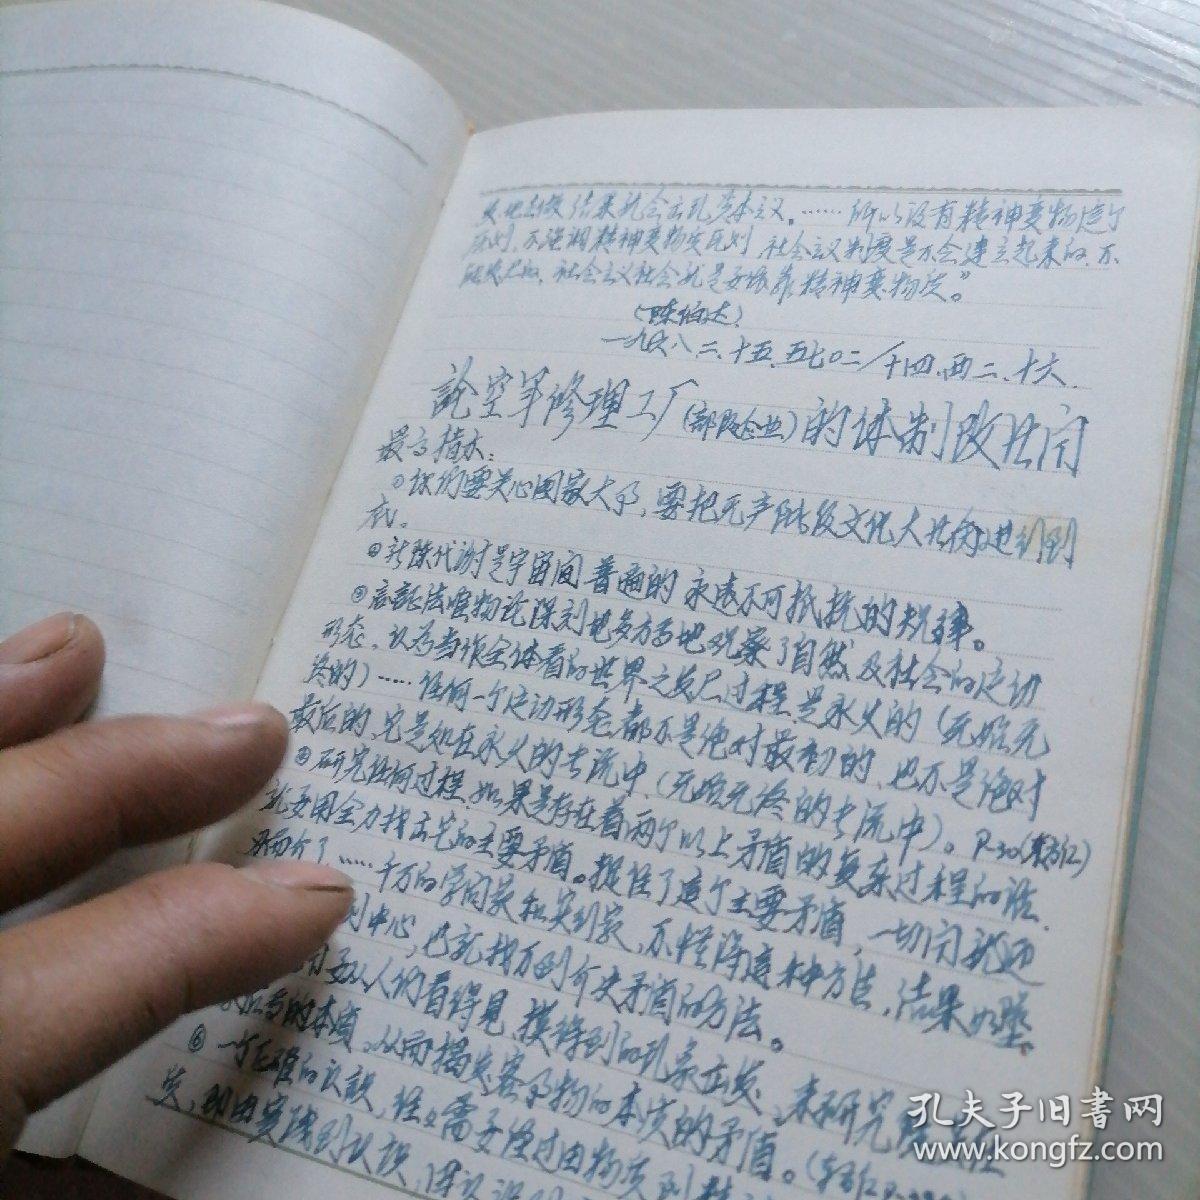 结果就会出现资本主义。……所以没有精神变物质这个
原则，不强调精神变物质原则，社会主义制度是不会建立起来的、不
社会主义社会就是要依靠精神变物质。”
（陈伯达）
一九六八、二、十五、五七〇二/十四、两二、十六、
論空军修理工厂（部队企业）的体制改革问
最高指示：
①你们要关心国家大事，要把无产阶级文化大革命进行到
底。
②新陈代谢是宇宙间普遍的永远不可抵抗的规律。
③辩証法唯物论深刻地多方面地观察了自然及社会的运动
形态，认为当作全体看的世界之发展过程，是永久的（无始无
终的）……任何一个运动形态都不是绝对最初的、也不是绝对
最后的，它是如在永久的长流中（无始无终的长流中）。P.30
④研究任何过程，如果是存在着两个以上矛盾的复杂过程的话，
就要用全力找出它的主要矛盾。捉住了这个主要矛盾，一切问题
了……千万的学问家和实行家，不懂得这种方法，结果如堕
中心，也就找不到解决矛盾的方法。
人们看得见、摸得到的现象出发，来研究
的本质，从而揭发客观事物的本质的矛盾。
⑥一个正确的认识，往往需要经过由物质到精
，即由实践到认识，
孔夫子旧書网
www.kongfz.com